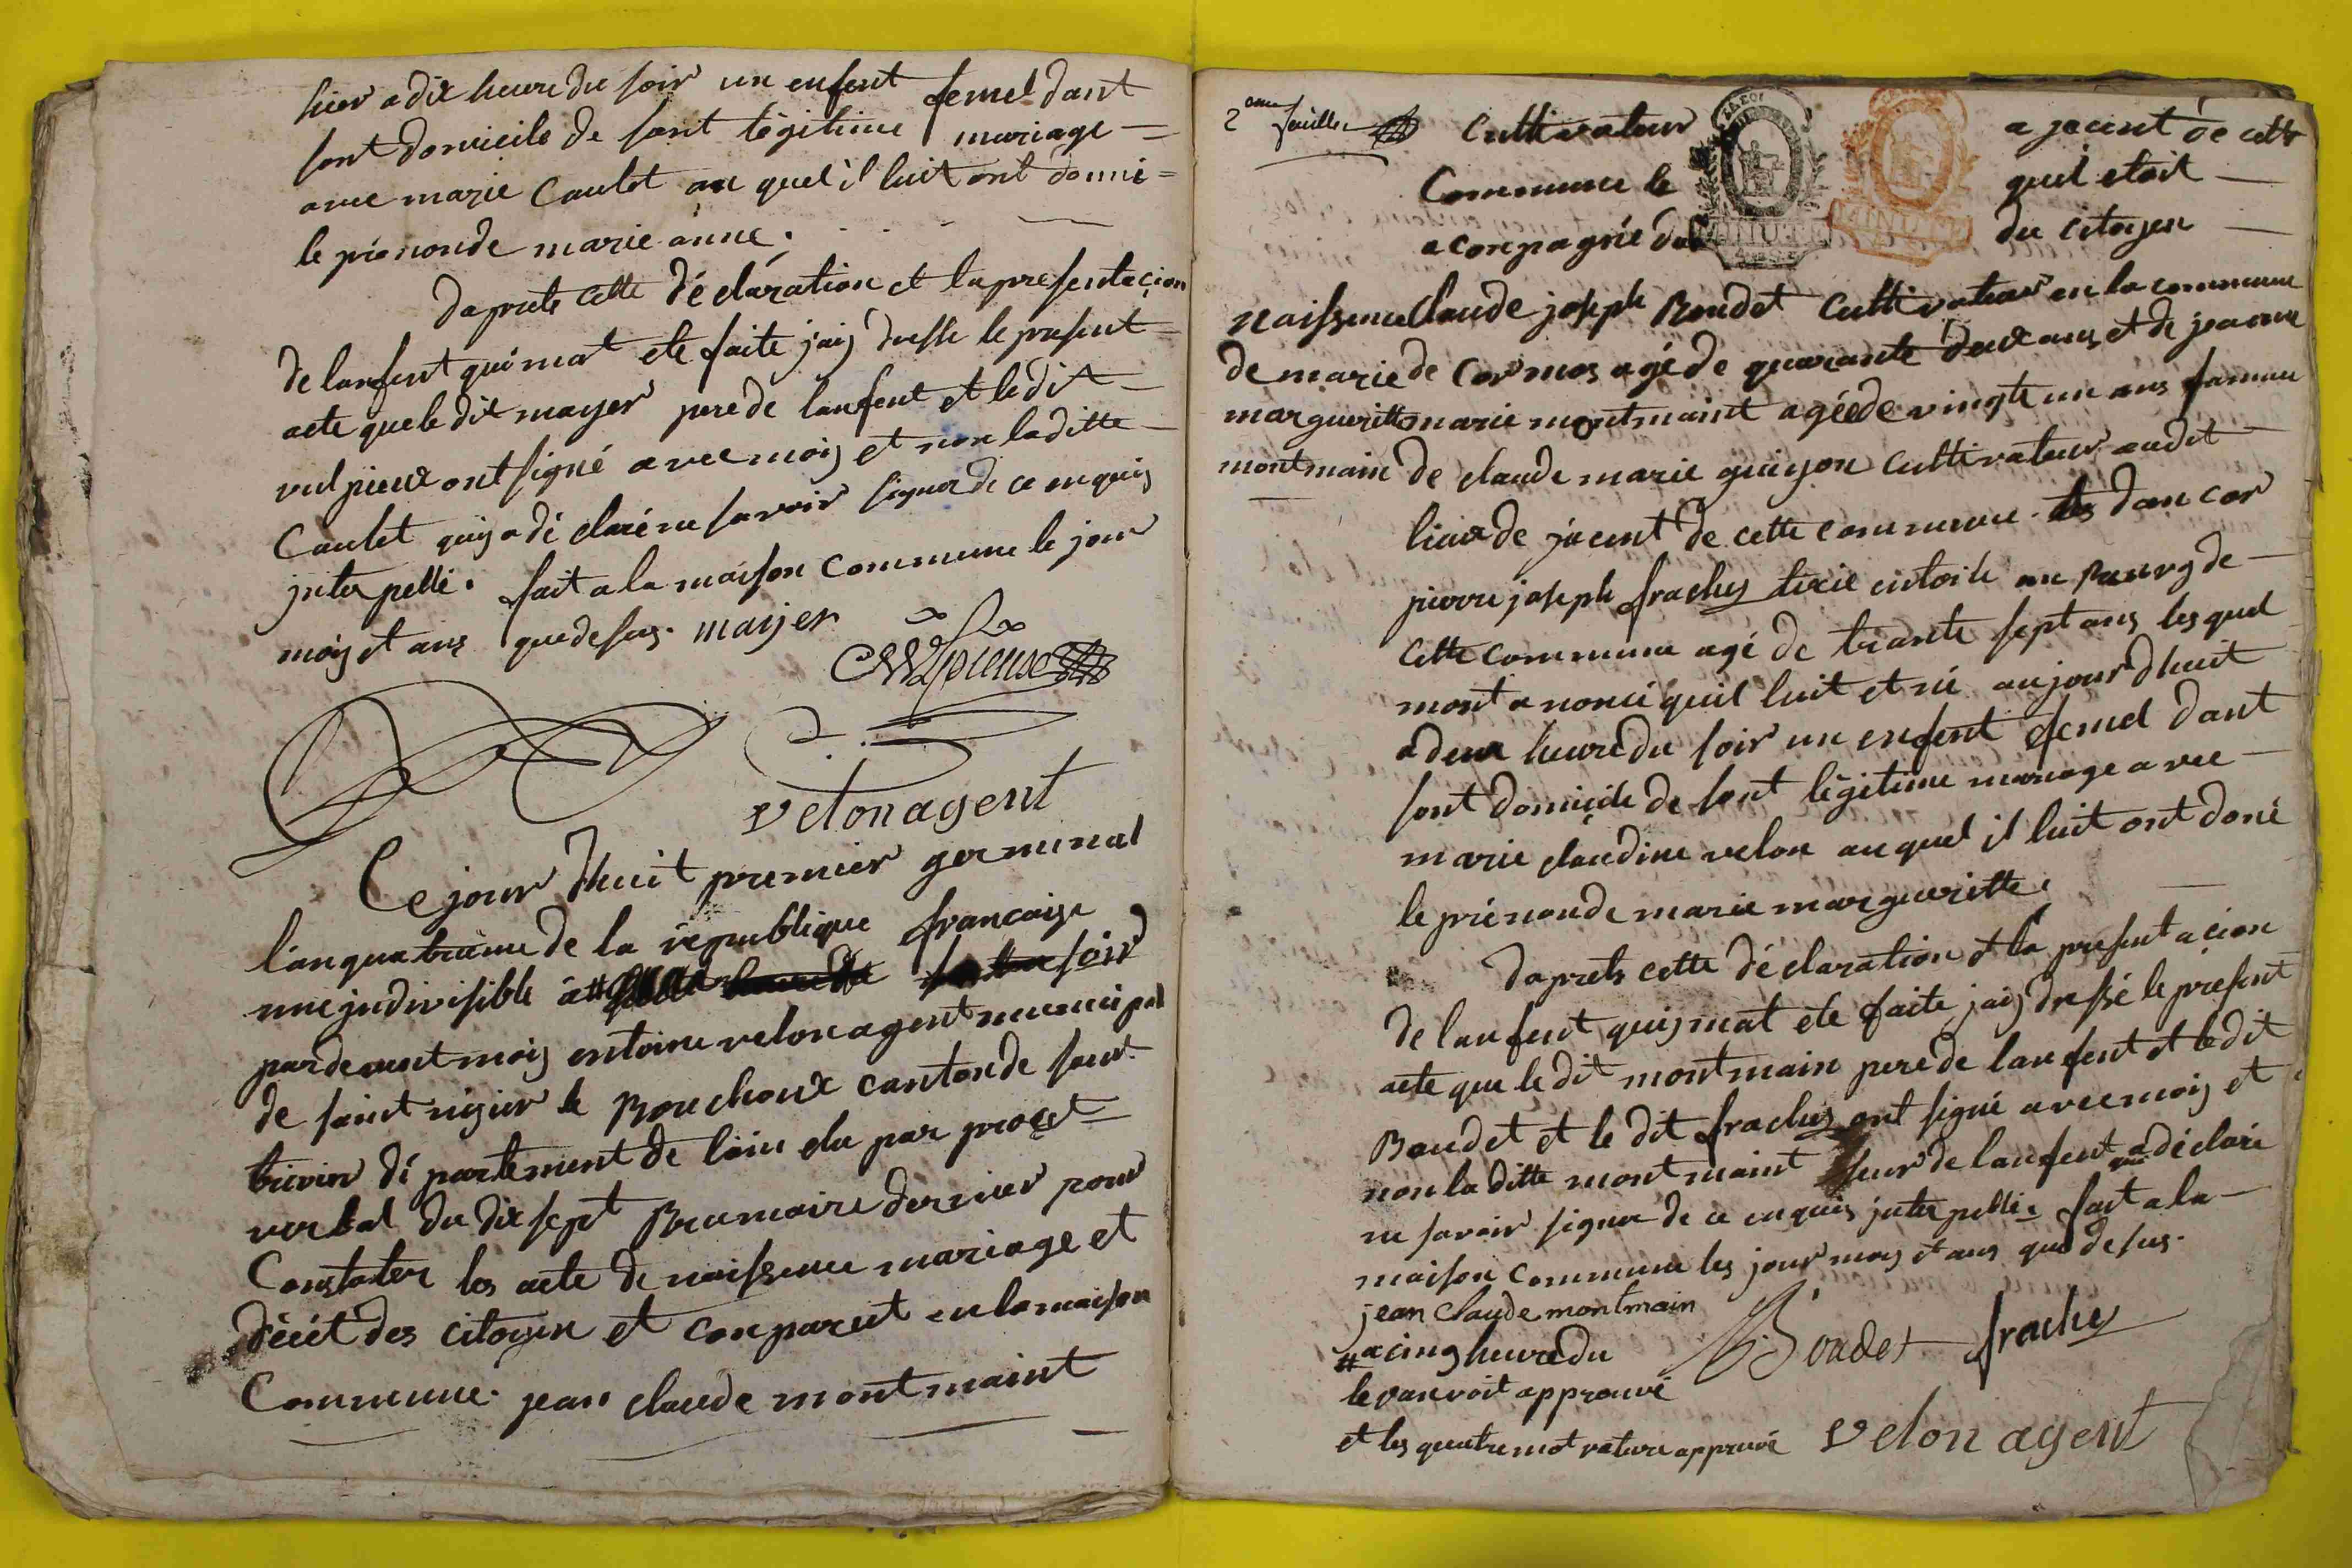 hier a dix heure du soir un enfent femel dant
sont domicile de sont légitime mariage
avec marie Caulet au quel il luit ont donné
le prénon de marie anne.
daprets cette déclaration et la presentacion
de lanfent qui mat ete faite jaiy dressé le present
acte que le dit mayer pere de lanfent et le dit
vulpieux ont signé avec moiy et non laditte
Caulet quiy a déclaré ne savoir signer de ce enquiy
jnterpellé. fait a la maison commune le jour
moiy et ans que desus. mayer
vulpieux
velon agent
Ce jour dhuit premier germinal
lan quatrieme de la république francaise
une jndivisible a # soir
pardevent moiy entoine velon agent municipal
de saint nizier le Bouchoux canton de saint
trivier département de lain elu par procet
verbal du dix sept Brumaire dernier pour
Constater les acte de naissence mariage et
décét des citoyen et conparut en la maison
Commune. jean claude montmaint
2eme feuille Cultivateur a jacent de cette
Commune le quel etoit
aconpagné du citoyen
naissence Claude joseph Boudet Cultivateur en la commune
de marie de Cormos agé de quarante deux ans et de jeanne
margueritte marie montmaint agée de vingte un ans famme
montmain de claude marie guiyon Cultivateur audit
lieux de jacent de cette commune dan cor
pierre joseph frachey tixie en toile au Bourg de
cette commune agé de trante sept ans les quel
mont anoncé quil luit et né aujourdhuit
a deux heure du soir un enfent femel dant
sont domicile de sont légitime mariage avec
marie claudine velon au quel il luit ont doné
le prénon de marie margueritte.
daprets cette déclaration et la presentacion
de lanfent quiy mat ete faite jaiy dressé le présent
acte que le dit montmain pere de lanfent et le dit
Boudet et le dit frachey ont signé avec moiy et
non la ditte montmaint seur de lanfent a déclaré
ne savoir signer de ce enquiy jnterpellé. fait a la
maison commune les jour moy et ans que desus.
jean Claude montmain
# a cinq heure du Boudet frachey
le ranvoit approuvé
et les quatre mot rature approuvé velon agent